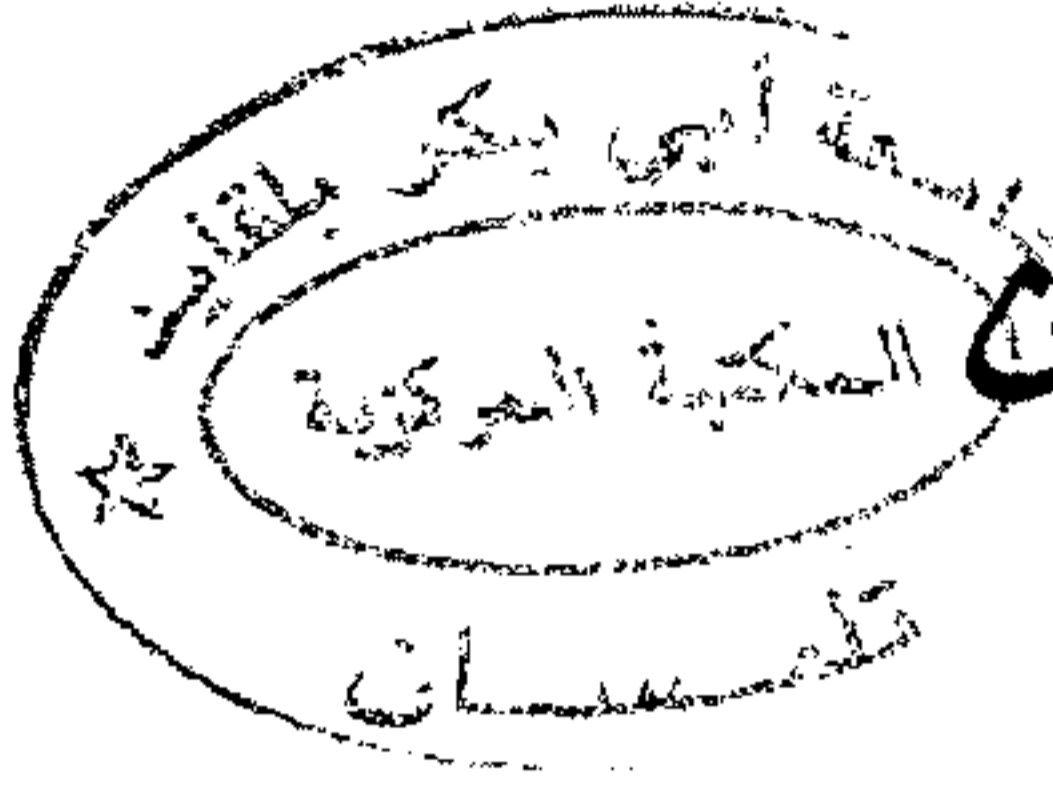 جامعة أبي بكر بلقايد
المكتبة المركزية
تلمسان